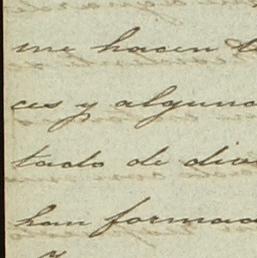 me hacen
ces y alguna
tado de dia
han formad